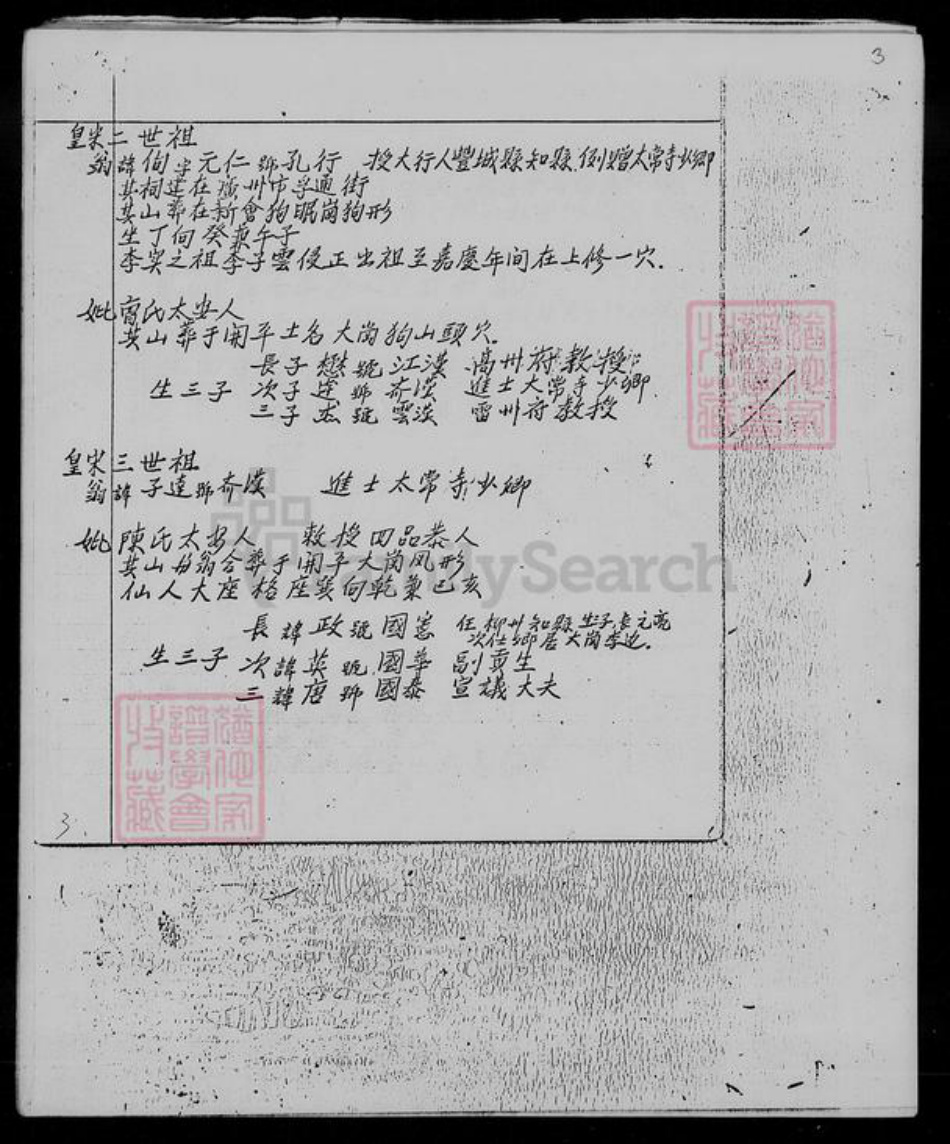 3
皇宋二世祖
翁諱佝字元仁號孔行 授大行人豐城縣知縣.例贈太常寺少卿
其祠建在廣州市孚通街
其山葬在新會狗眠崗狗形
坐丁向癸兼午子
李奕之祖李子雲侵正出祖至嘉慶年间在上修一穴.
妣 氏太安人
其山葬于開平土名大崗狗山頭穴.
長子懋號江漢 高州府教授
生三子 次子達號齐漢 進士太常寺少卿
三子杰號雲漢 雷州府教授
皇宋三世祖
翁諱子達號齐漢 進士太常寺少卿
妣陳氏太安人 敕授四品恭人
其山与翁合葬于開平大崗凤形
仙人大座格座巽向乾兼巳亥
長諱政號國憲 任柳州知縣.生子長元亮
次仕 鄉居大崗李边.
生三子 次諱英號國華 副貢生
三諱唐號國泰 宣議大夫
3.
FamilySearch
譜學會
特藏